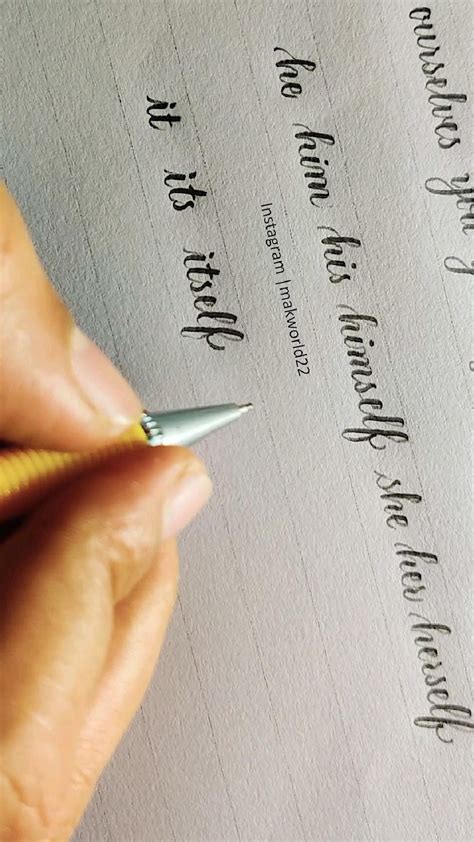 ourselves you
he him his himself she her herself
Instagram | makworld22
it its itself